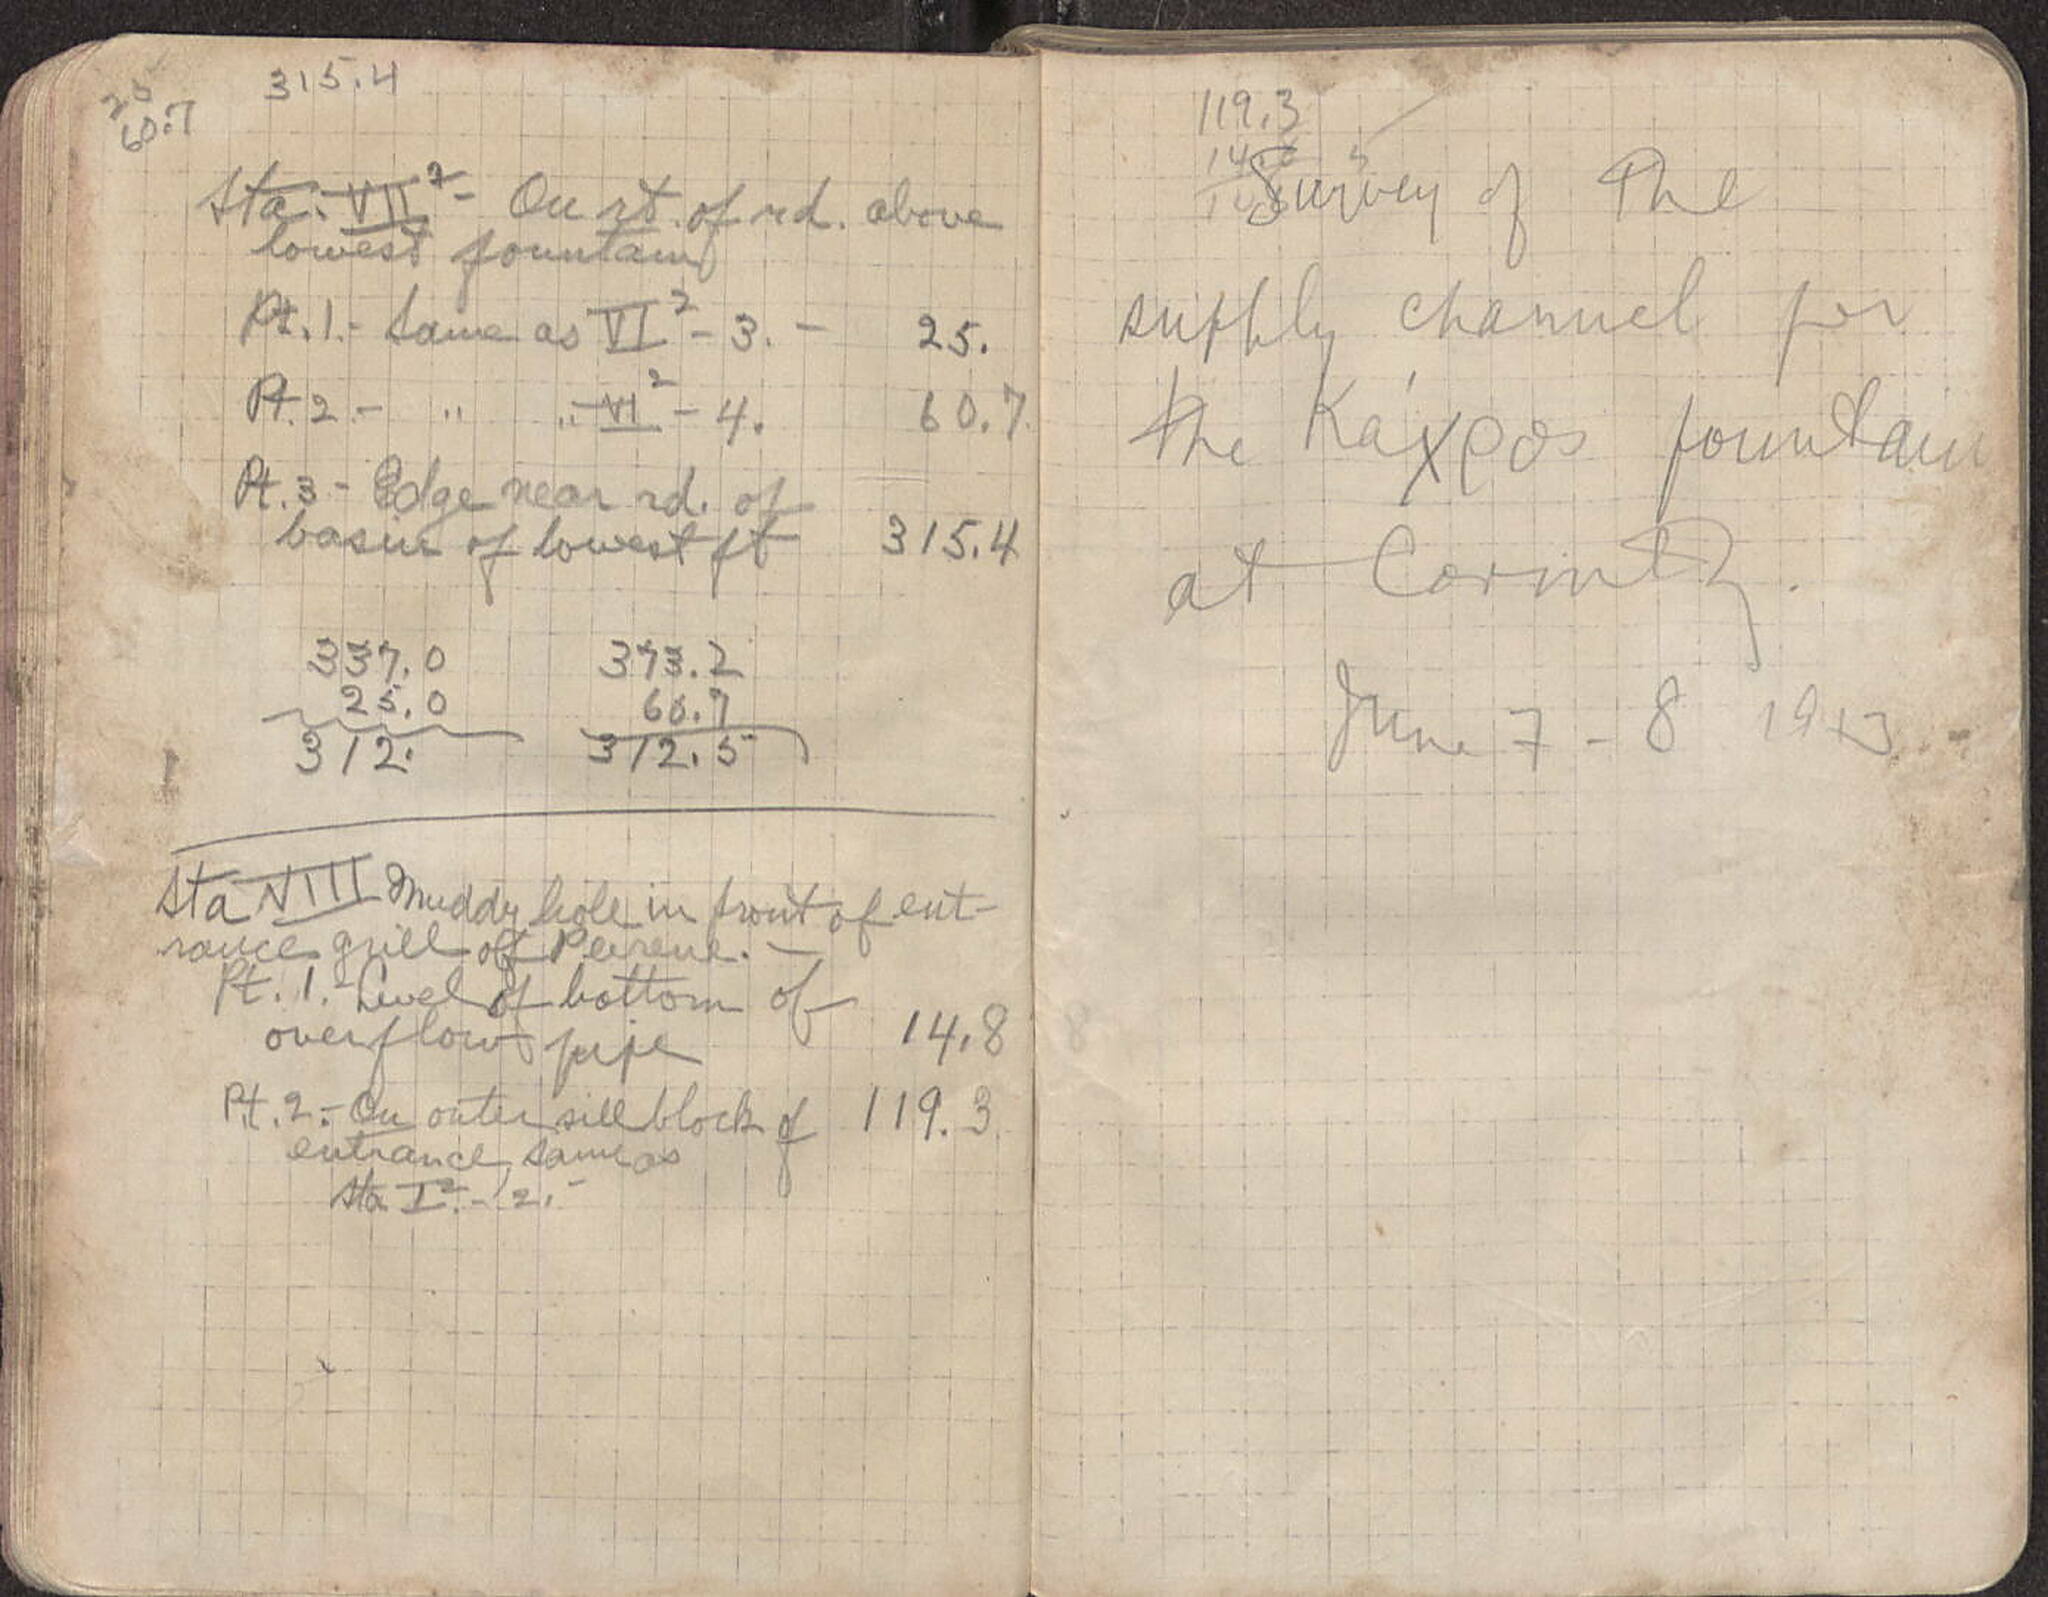 25
60.7
315.4
Sta. VII² - On rt. of rd. above
lowest fountain
Pt. 1. - Same as VI² - 3. - 25.
Pt. 2. - " " VI² - 4. 60.7
Pt. 3 - Edge near rd. of
basin of lowest ft 315.4
337.0 373.2
25.0 60.7
312. 312.5
Sta VIII Muddy hole in front of ent-
rance grill of Peirene. -
Pt. 1. - Level of bottom of
overflow pipe 14.8
Pt. 2. - On outer sill block of 119.3
entrance, same as
Sta I² - 2. -
119.3
14.8
Survey of the
supply channel for
the Κάχρος fountain
at Corinth.
June 7 - 8 1913